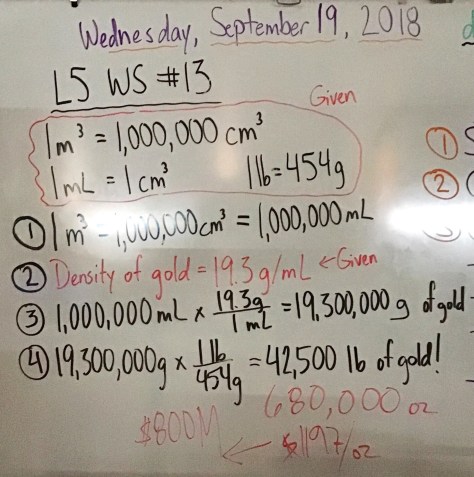 Wednesday, September 19, 2018
L5 WS #13
Given
1m³ = 1,000,000 cm³
1mL = 1cm³ 1lb=454g
① 1m³ = 1,000,000cm³ = 1,000,000mL
② Density of gold = 19.3g/mL ←Given
③ 1,000,000mL x 19.3g/1mL = 19,300,000g of gold
④ 19,300,000g x 1lb/454g = 42,500 lb of gold!
680,000 oz
$800M ← $1197/oz
①
②